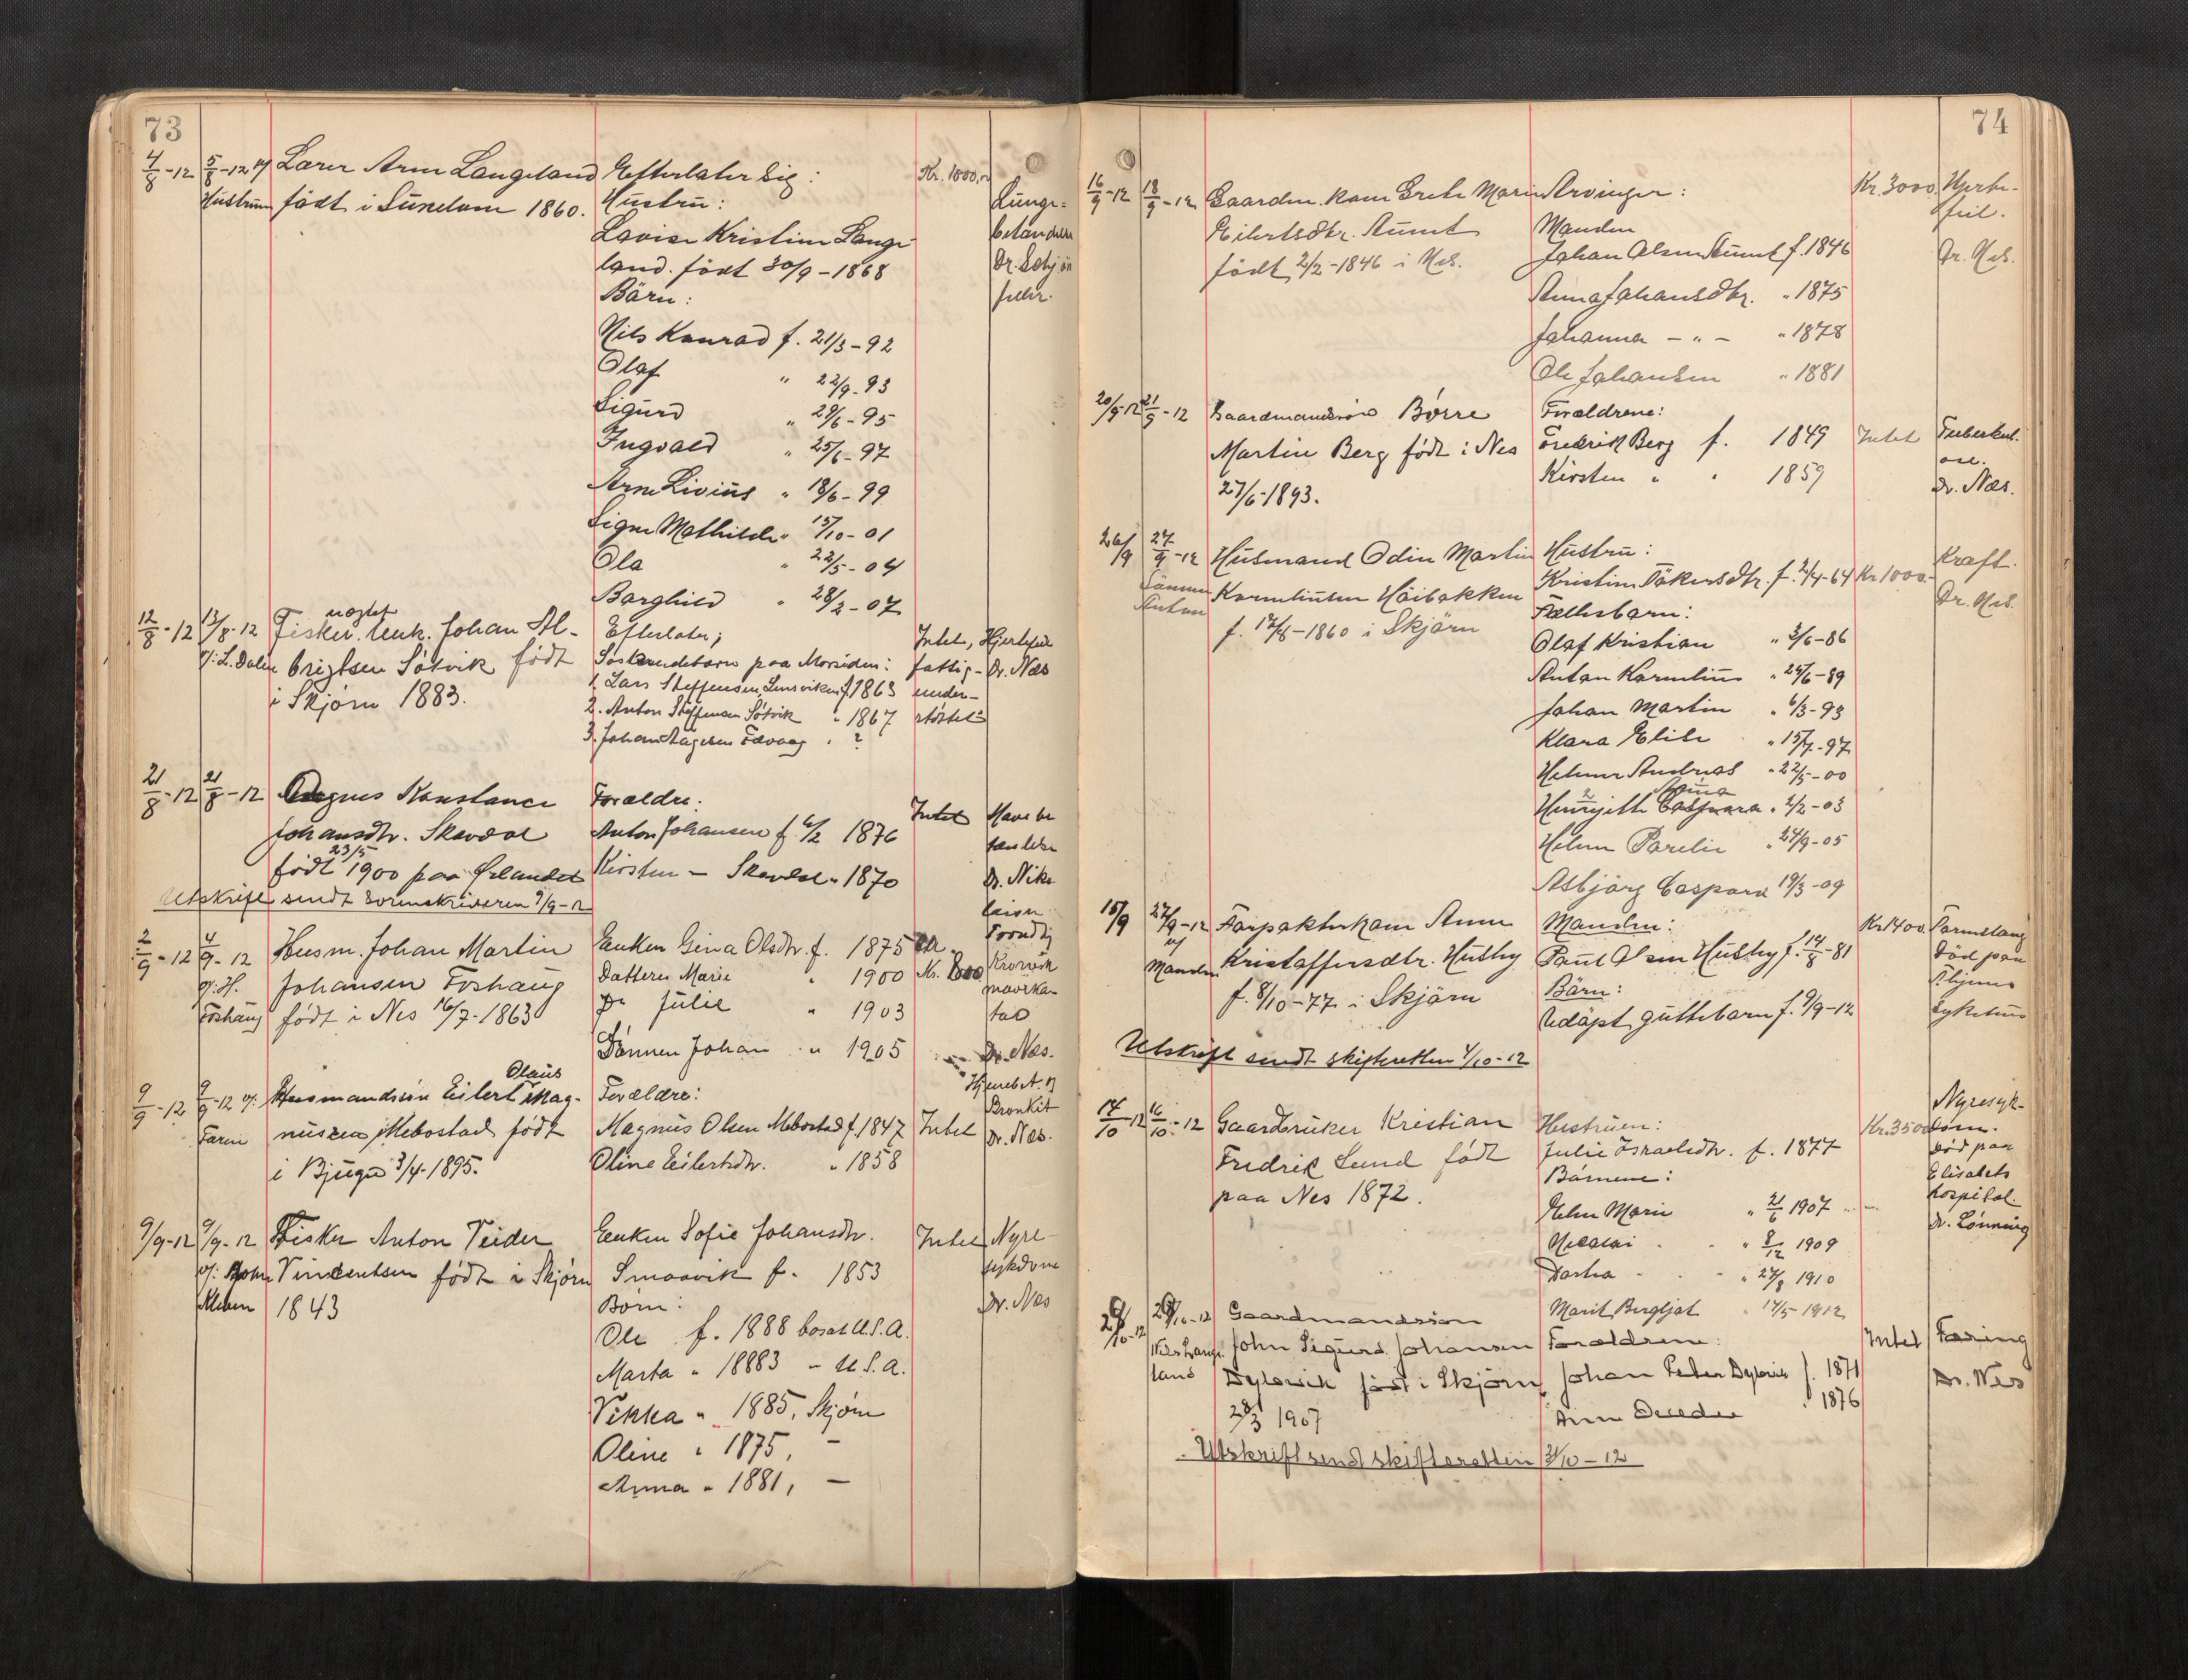 73
4/8-12 5/8-12 v/ Lærer Arne Langeland Efterlater sig: Kr. 1000,00
Hustrun født i Surelom 1860. Hustru: Lunge-
Lovise Kristine Lange- betændelse
land. født 30/9-1868 Dr. Schjön
Bärn:
Nils Konrad f. 21/3-92
Olaf " 22/9-93
Sigurd " 29/6-95
Ingvald " 25/6-97
Arne Livius " 18/6-99
Signe Mathilde " 15/10-01
Ola " 22/5-04
Borghild " 28/2-07
ugift
12/8-12 13/8-12 Fisker. Johan Al- Efterlater; Intet, Hjertefeil
v/: L. Dalen brigtsen Sötvik født Söskendebarn paa Morsiden: fattig- Dr. Næs
i Skjörn 1883. 1. Lars Steffensen, Lensviken f. 1863 under-
2. Anton Steffensen Sötvik " 1867 støttet
3. Johan Aagesen Fævaag " ?
21/8-12 21/8-12 Magnus Konstance Forældre: Intet Mave be
Johansdtr. Skavdal Anton Johansen f. 6/2 1876 tændelse
23/5
født 1900 paa Ørlandet Kirsten — Skavdal " 1870 Dr. Niko
Utskrift sendt Sorenskriveren 9/9-12 laisen
2/9-12 4/9-12 Husm. Johan Martin Enken Gina Olsdtr. f. 1875 Trondhj
v/: H. Johansen Foshaug Datteren Marie " 1900 Kr. 800
Foshaug født i Nes 16/7-1863 Do Julie " 1903
Sønnen Johan " 1905 Dr. Næs.
Olaus
9/9-12 9/9-12 v/: Husmandssön Eilert Mag- Forældre: Bronkit
Faren nussen Mebostad født Magnus Olsen Mebostad f. 1847 Intet Dr. Næs.
i Bjugn 3/4-1895. Oline Eilertsdtr. " 1858
9/9-12 9/9-12 Fisker Anton Peider Enken Sofie Johansdtr. Intet Nyre-
v/: John Vincentsen født i Skjörn Smaavik f. 1853 sykdom
1843 Börn: Dr. Næs
Ole f. 1888 bosat U.S.A.
Marta " 18883 " U.S.A.
Vikka " 1885, Skjörn
Oline " 1875, —
Anna " 1881, —
74
16/9-12 18/9-12 Gaardm. kone Grete Marie Arvinger: Kr. 3000 Hjerte-
Eilertsdtr. Aunet Manden feil.
født 2/2-1846 i Nes. Johan Olsen Aunet f. 1846 Dr. Næs.
Anna Johansdtr. " 1875
Johanna — " — " 1878
Ole Johansen " 1881
20/9-12 21/9-12 Gaardmandssön Börre Forældrene:
Martin Berg født i Nes Fredrik Berg f. 1849 Intet Tuberkul-
27/6-1893. Kirsten " " 1859 ose.
Dr. Næs.
26/9 27/9-12 Husmand Odin Martin Hustru: Kræft.
Sönnen Karmliussen Höibakken Kristine Tökersdtr. f. 2/4-64 Kr 1000.- Dr. Næs.
Anton f. 12/8-1860 i Skjörn Fællesbarn:
Olaf Kristian " 3/6-86
Anton Karmlius " 24/6-89
Johan Martin " 6/3-93
Klara Elise " 15/7-97
Helmer Andreas " 22/5-00
Anna
Henrijette Caspara " 2/2-03
Helma Parelie " 24/9-05
Asbjörg Caspara 19/3-09
15/9 27/9-12 Forpakterkone Anne Manden: Kr 1400 Tarmslang
af Kristoffersdtr. Husby Paul Olsen Husby f. 14/8-81 Död paa
Manden f. 8/10-77 i Skjörn Bärn: Klijnns
Udöpt guttebarn f. 9/9-12 Sykehus
Utskrift sendt skifteretten 4/10-12
14/10-12 16/10-12 Gaardbruker Kristian Hustruen: Kr. 3500 Nyresyk-
Fredrik Lund født Julie Israelsdtr. f. 1877 dom.
paa Nes 1872. Bärnene: Död paa
Ellen Marie " 21/6 1907 Elisabets
Nicolai " 8/12 1909 hospital.
Dortea " 27/8 1910 Dr. Lönning
Marit Bergljot " 14/5 1912
29/10-12 29/10-12 Gaardmandssön
Nils Lange- John Sigurd Johansen Forældrene: Intet Tæring
land Dylevik født i Skjörn Johan Peder Dylevik f. 1871 Dr. Nes
28/3 1907 Anne " 1876
Utskrift sendt skifteretten 31/10-12